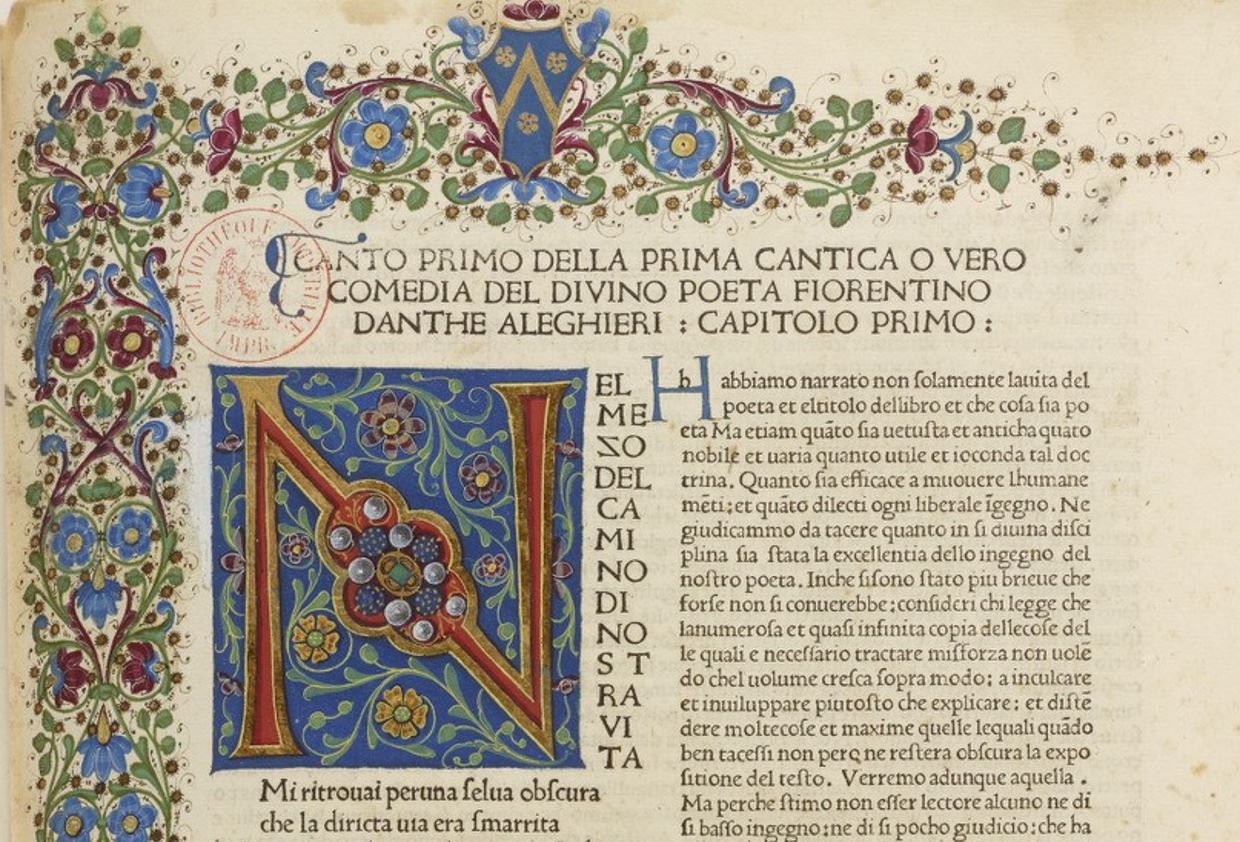 BIBLIOTHEQUE IMPERIALE
IMPR.
CANTO PRIMO DELLA PRIMA CANTICA O VERO
COMEDIA DEL DIVINO POETA FIORENTINO
DANTHE ALEGHIERI : CAPITOLO PRIMO :
N
EL
ME
ZO
DEL
CA
MI
NO
DI
NO
S T
RA
VI
TA
Mi ritrouai peruna ſelua obſcura
che la diricta uia era ſmarrita
H abbiamo narrato non ſolamente lauita del
poeta et eltitolo dellibro et che coſa ſia po
eta Ma etiam quāto ſia uetuſta et anticha quāto
nobile et uaria quanto utile et ioconda tal doc
trina. Quanto ſia efficace a muouere lhumane
mēti; et quāto dilecti ogni liberale īgegno. Ne
giudicammo da tacere quanto in ſi diuina diſci
plina ſia ſtata la excellentia dello ingegno del
noſtro poeta. Inche ſiſono ſtato piu brieue che
forſe non ſi conuerebbe; conſideri chi legge che
lanumeroſa et quaſi infinita copia dellecoſe del
le quali e neceſſario tractare miſforza non uolē
do chel uolume creſca ſopra modo; a inculcare
et inuiluppare piutoſto che explicare; et diſtē
dere moltecoſe et maxime quelle lequali quādo
ben taceſſi non pero ne reſtera obſcura la expo
ſitione del teſto. Verremo adunque aquella .
Ma perche ſtimo non eſſer lectore alcuno ne di
ſi baſſo ingegno; ne di ſi pocho giudicio; che ha